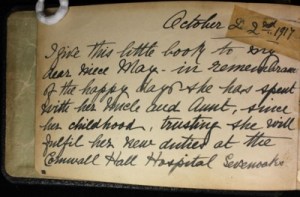 October 22nd, 1917
I give this little book to my
dear niece May - in remembrance
of the happy days she has spent
with her Uncle and Aunt, since
her childhood, trusting she will
fulfil her new duties at the
Cornwall Hall Hospital Sevenoaks